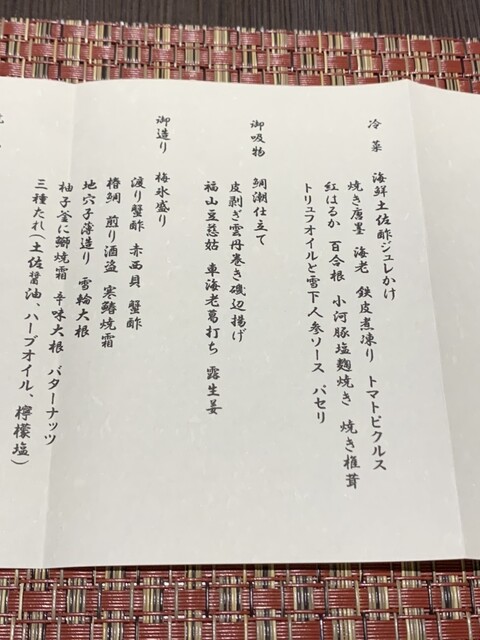 冷菜
海鮮土佐酢ジュレかけ
焼き唐墨 海老 鉄皮煮凍り トマトピクルス
紅はるか 百合根 小河豚塩麹焼き 焼き椎茸
トリュフオイルと雪下人参ソース パセリ
御吸物
鯛潮仕立て
皮剥ぎ雲丹巻き磯辺揚げ
福山豆慈姑 車海老葛打ち 露生姜
御造り
梅氷盛り
渡り蟹酢 赤西貝 蟹酢
椿鯛 煎り酒盗 寒鰆焼霜
地穴子薄造り 雪輪大根
柚子釜に鰤焼霜 辛味大根 バターナッツ
三種たれ(土佐醤油、ハーブオイル、檸檬塩)